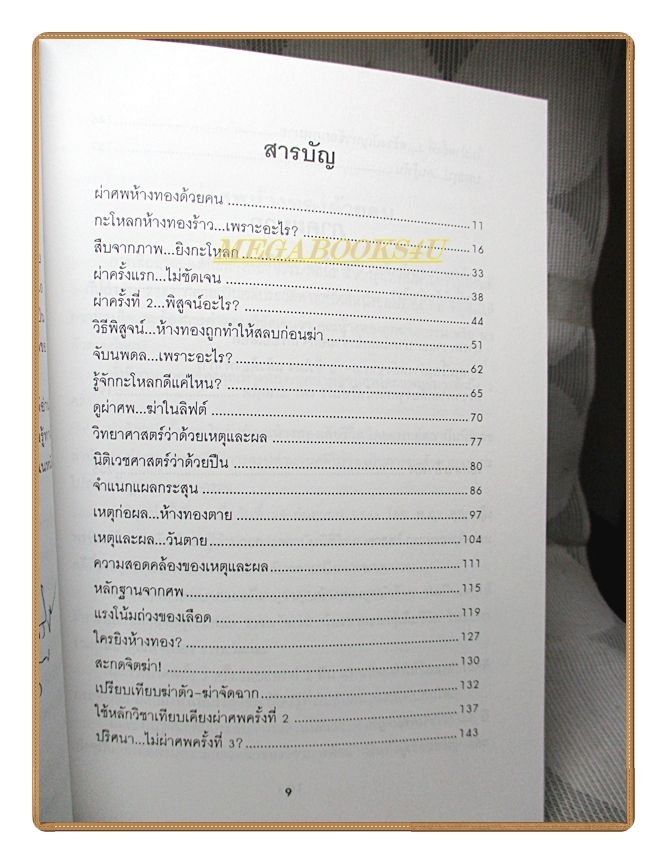 สารบัญ
ผ่าศพห้างทองด้วยคน ........ 11
กะโหลกห้างทองร้าว...เพราะอะไร? ........ 16
สืบจากภาพ...ยิงกะโหลก ........ 33
MEGABOOKS4U
ผ่าครั้งแรก...ไม่ชัดเจน ........ 38
ผ่าครั้งที่ 2...พิสูจน์อะไร? ........ 44
วิธีพิสูจน์...ห้างทองถูกทำให้สลบก่อนฆ่า ........ 51
จับนพดล...เพราะอะไร? ........ 62
รู้จักกะโหลกดีแค่ไหน? ........ 65
ดูผ่าศพ...ฆ่าในลิฟต์ ........ 70
วิทยาศาสตร์ว่าด้วยเหตุและผล ........ 77
นิติเวชศาสตร์ว่าด้วยปืน ........ 80
จำแนกแผลกระสุน ........ 86
เหตุก่อผล...ห้างทองตาย ........ 97
เหตุและผล...วันตาย ........ 104
ความสอดคล้องของเหตุและผล ........ 111
หลักฐานจากศพ ........ 115
แรงโน้มถ่วงของเลือด ........ 119
ใครยิงห้างทอง? ........ 127
สะกดจิตฆ่า! ........ 130
เปรียบเทียบฆ่าตัว-ฆ่าจัดฉาก ........ 132
ใช้หลักวิชาเทียบเคียงผ่าศพครั้งที่ 2 ........ 137
ปริศนา...ไม่ผ่าศพครั้งที่ 3? ........ 143
9